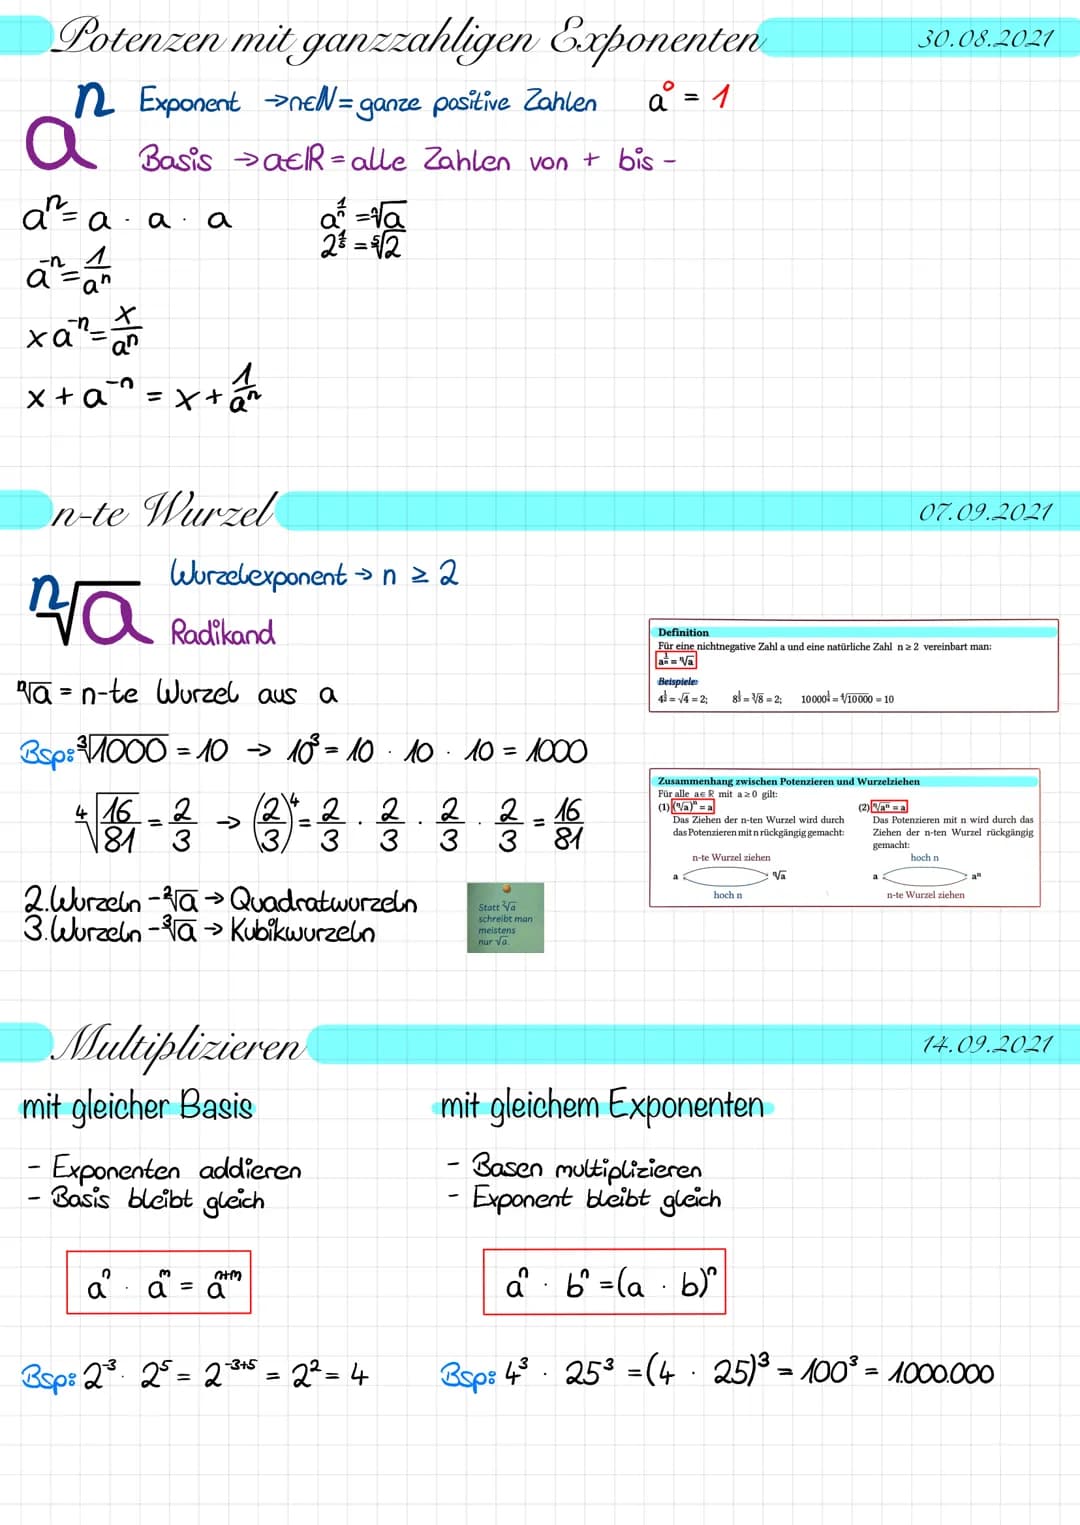 Potenzen mit ganzzahligen Exponenten 30.08.2021
aⁿ
n Exponent →n∈ℕ = ganze positive Zahlen a⁰ = 1
a Basis →a∈ℝ = alle Zahlen von + bis -
aⁿ = a · a · a a^(1/n) = ⁿ√a
2^(1/5) = ⁵√2
a⁻ⁿ = 1/aⁿ
xa⁻ⁿ = x/aⁿ
x + a⁻ⁿ = x + 1/aⁿ
n-te Wurzel 07.09.2021
ⁿ√a
Wurzelexponent → n ≥ 2
Radikand
ⁿ√a = n-te Wurzel aus a
Bsp: ³√1000 = 10 → 10³ = 10 · 10 · 10 = 1000
⁴√(16/81) = 2/3 → (2/3)⁴ = 2/3 · 2/3 · 2/3 · 2/3 = 16/81
2.Wurzeln - ²√a → Quadratwurzeln
3.Wurzeln - ³√a → Kubikwurzeln
Statt ²√a
schreibt man
meistens
nur √a.
Definition
Für eine nichtnegative Zahl a und eine natürliche Zahl n ≥ 2 vereinbart man:
a^(1/n) = ⁿ√a
Beispiele:
4^(1/2) = √4 = 2; 8^(1/3) = ³√8 = 2; 10000^(1/4) = ⁴√10000 = 10
Zusammenhang zwischen Potenzieren und Wurzelziehen
Für alle a∈ℝ mit a ≥ 0 gilt:
(1) (ⁿ√a)ⁿ = a
Das Ziehen der n-ten Wurzel wird durch
das Potenzieren mit n rückgängig gemacht:
n-te Wurzel ziehen
a ⁿ√a
hoch n
(2) ⁿ√aⁿ = a
Das Potenzieren mit n wird durch das
Ziehen der n-ten Wurzel rückgängig
gemacht:
hoch n
a aⁿ
n-te Wurzel ziehen
Multiplizieren 14.09.2021
mit gleicher Basis
- Exponenten addieren
- Basis bleibt gleich
aⁿ · aᵐ = aⁿ⁺ᵐ
Bsp: 2⁻³ · 2⁵ = 2⁻³⁺⁵ = 2² = 4
mit gleichem Exponenten
- Basen multiplizieren
- Exponent bleibt gleich
aⁿ · bⁿ = (a · b)ⁿ
Bsp: 4³ · 25³ = (4 · 25)³ = 100³ = 1.000.000